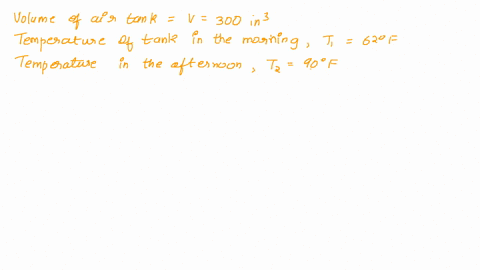 Volume of air tank = V = 300 in³
Temperature of tank in the morning, T₁ = 62°F
Temperature in the afternoon, T₂ = 90°F